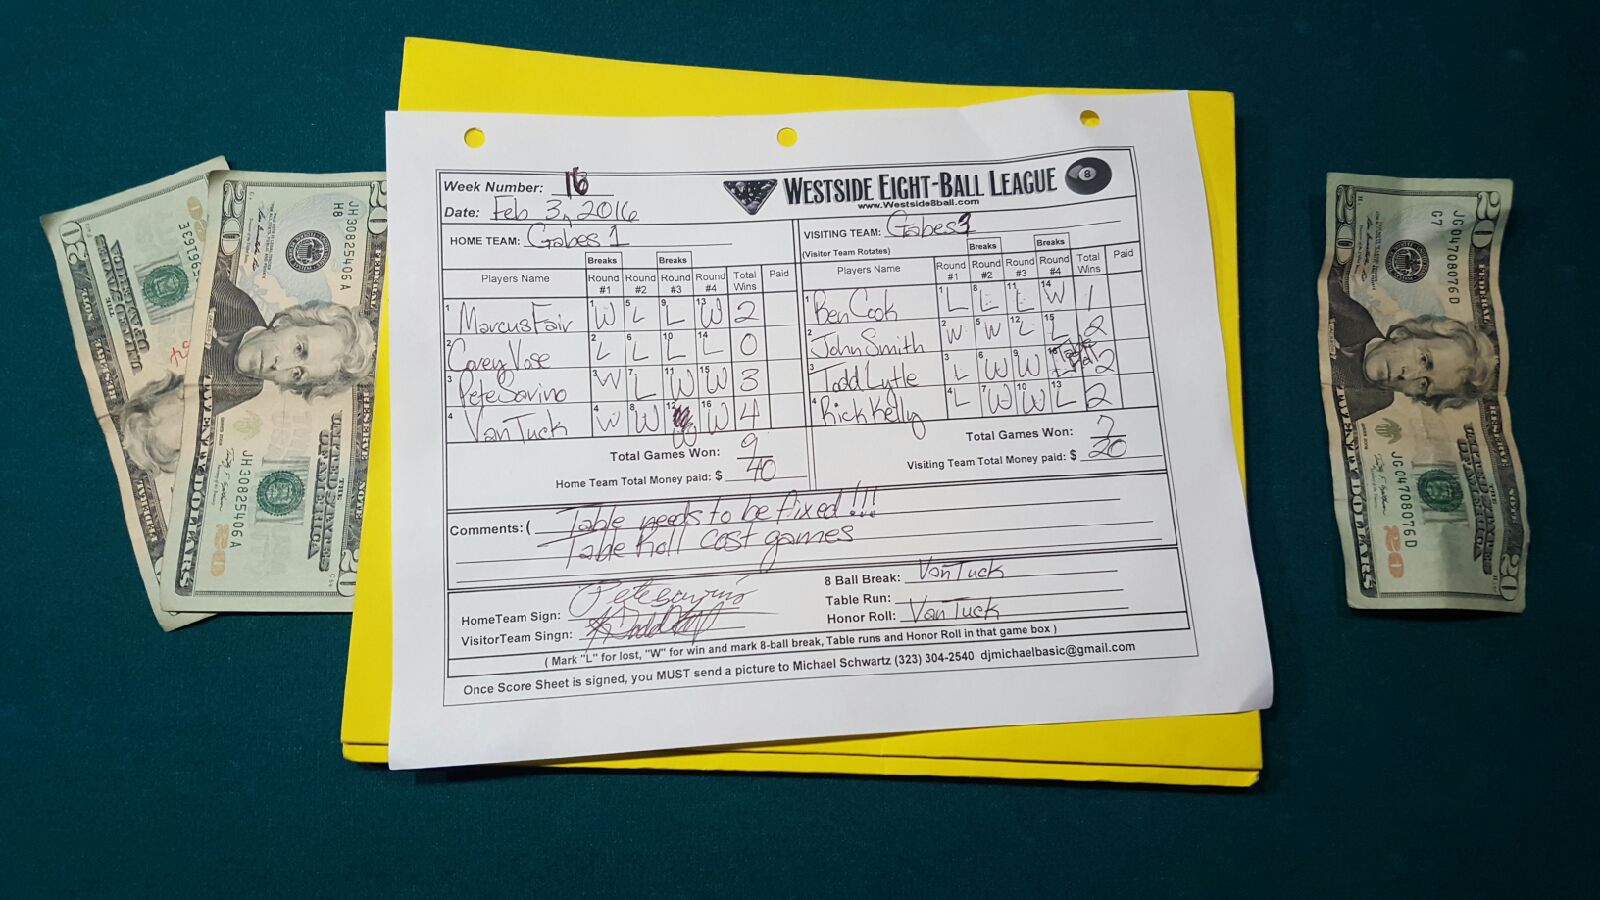 Week Number: 16
WESTSIDE EIGHT-BALL LEAGUE
8
www.Westside8ball.com
Date: Feb 3, 2016
HOME TEAM: Gabes 1
VISITING TEAM: Gabes
(Visitor Team Rotates)
Breaks Breaks
Breaks Breaks
Players Name Round #1 Round #2 Round #3 Round #4 Total Wins Paid
Players Name Round #1 Round #2 Round #3 Round #4 Total Wins Paid
1 Marcus Fair 1 W 5 L 9 L 13 W 2
2 Corey Vose 2 L 6 L 10 L 14 L 0
3 Pete Savino 3 W 7 L 11 W 15 W 3
4 Van Tuck 4 W 8 W 12 W 16 W 4
Total Games Won: 9
Home Team Total Money paid: $ 40
1 Ben Cook 1 L 8 L 11 L 14 W 1
2 John Smith 2 W 5 W 12 L 15 L 2
3 Todd Lytle 3 L 6 W 9 W 16 2
4 Rick Kelly 4 L 7 W 10 W 13 L 2
Total Games Won: 7
Visiting Team Total Money paid: $ 20
Comments: ( Table needs to be fixed!!!
Table Roll cost games
HomeTeam Sign: Pete Savino
VisitorTeam Singn:
8 Ball Break: Van Tuck
Table Run:
Honor Roll: Van Tuck
( Mark "L" for lost, "W" for win and mark 8-ball break, Table runs and Honor Roll in that game box )
Once Score Sheet is signed, you MUST send a picture to Michael Schwartz (323) 304-2540 djmichaelbasic@gmail.com
JH30825406A
H8
JH30825406A
20
THE UNITED STATES OF AMERICA
TWENTY DOLLARS
JG04708076D
G7
JG04708076D
20
THE UNITED STATES OF AMERICA
TWENTY DOLLARS